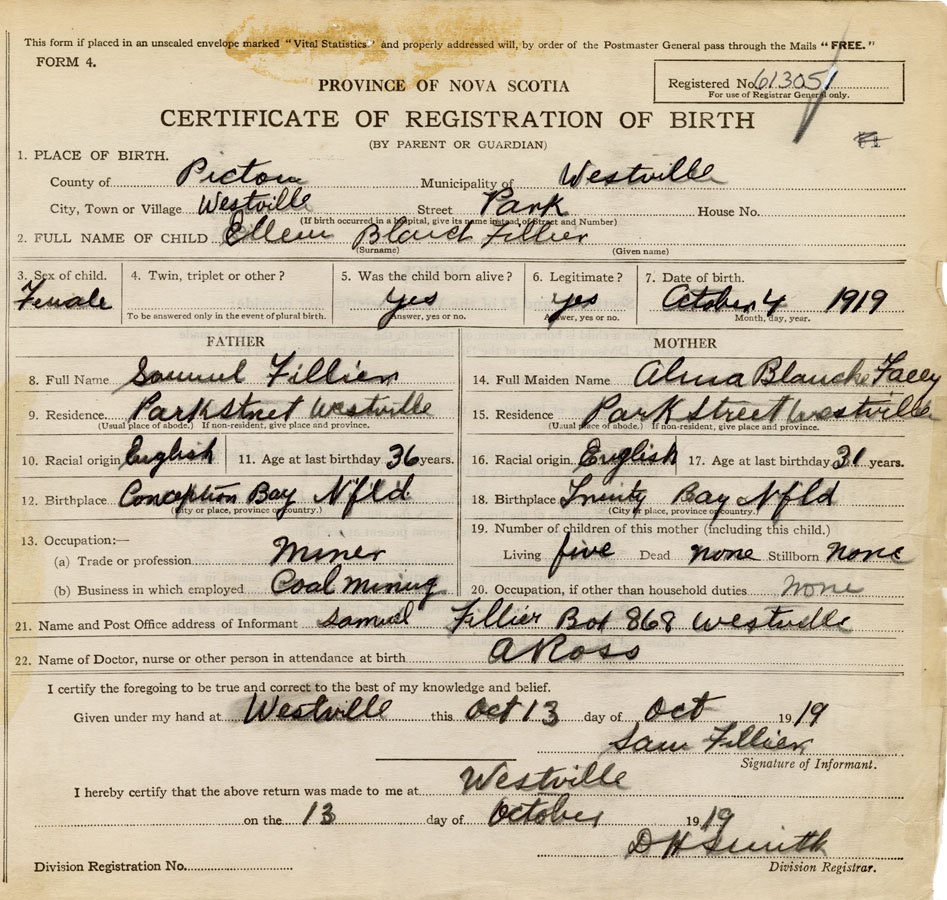 This form if placed in an unsealed envelope marked "Vital Statistics" and properly addressed will, by order of the Postmaster General pass through the Mails "FREE."
FORM 4.
Registered No. 61305
For use of Registrar General only.
PROVINCE OF NOVA SCOTIA
CERTIFICATE OF REGISTRATION OF BIRTH
(BY PARENT OR GUARDIAN)
1. PLACE OF BIRTH.
County of Pictou Municipality of Westville
City, Town or Village Westville Street Park House No.
(If birth occurred in a hospital, give its name instead of Street and Number)
2. FULL NAME OF CHILD Ellen Blanch Fillier
(Surname) (Given name)
3. Sex of child. 4. Twin, triplet or other? 5. Was the child born alive? 6. Legitimate? 7. Date of birth.
Female yes yes October 4 1919
To be answered only in the event of plural birth. Answer, yes or no. Answer, yes or no. Month, day, year.
FATHER MOTHER
8. Full Name Samuel Fillier 14. Full Maiden Name Alma Blanche
9. Residence Park Street Westville 15. Residence Park Street Westville
(Usual place of abode.) If non-resident, give place and province. (Usual place of abode.) If non-resident, give place and province.
10. Racial origin English 11. Age at last birthday 36 years. 16. Racial origin English 17. Age at last birthday 31 years.
12. Birthplace Conception Bay Nfld. 18. Birthplace Trinity Bay Nfld
(City or place, province or country.) (City or place, province or country.)
13. Occupation:— 19. Number of children of this mother (including this child.)
(a) Trade or profession Miner Living five Dead none Stillborn none
(b) Business in which employed Coal Mining 20. Occupation, if other than household duties none
21. Name and Post Office address of Informant Samuel Fillier Box 868 Westville
22. Name of Doctor, nurse or other person in attendance at birth A Ross
I certify the foregoing to be true and correct to the best of my knowledge and belief.
Given under my hand at Westville this Oct 13 day of Oct 1919
Sam Fillier
Signature of Informant.
I hereby certify that the above return was made to me at Westville
on the 13 day of October 1919
D H Smith
Division Registration No. Division Registrar.